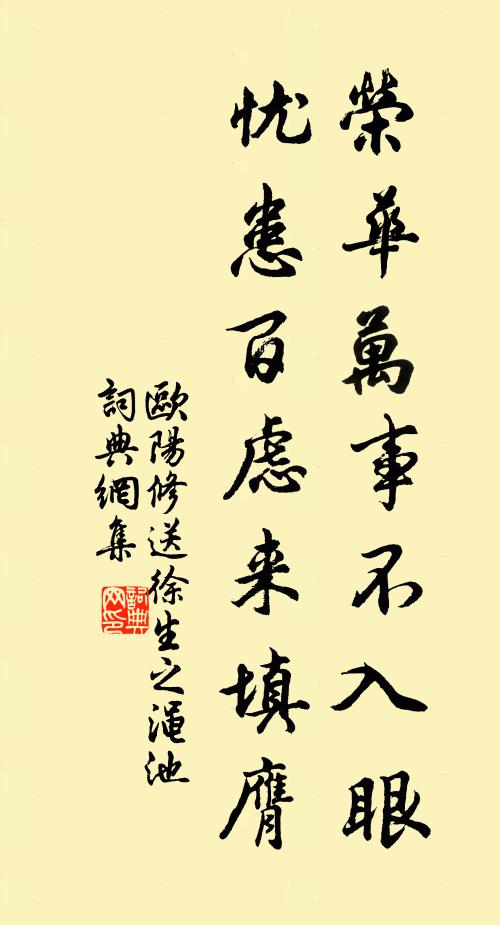 榮華萬事不入眼
忧患百慮来填膺
歐陽修送徐生之澠池
詞典網集
詞典
网印